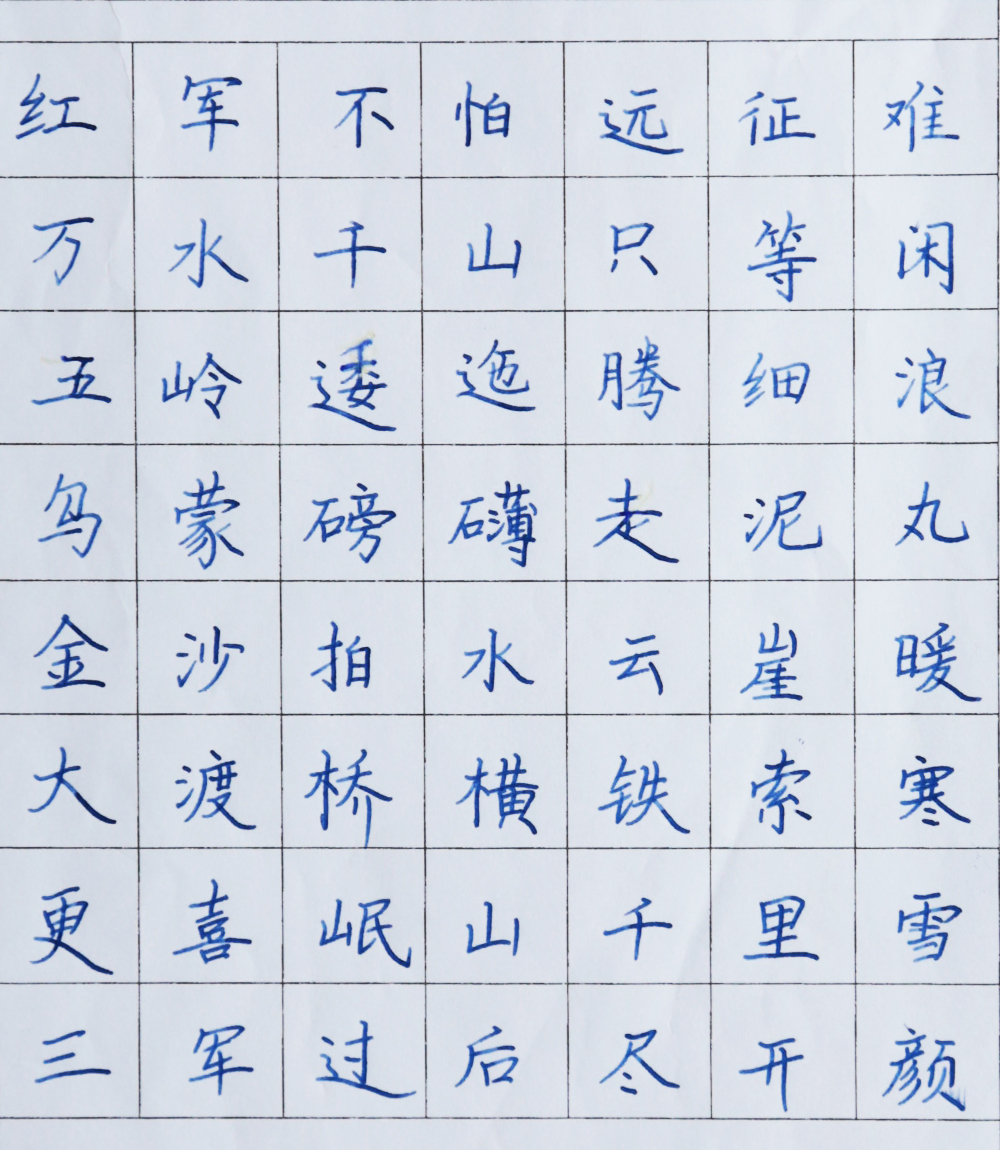 红军不怕远征难
万水千山只等闲
五岭逶迤腾细浪
乌蒙磅礴走泥丸
金沙拍水云崖暖
大渡桥横铁索寒
更喜岷山千里雪
三军过后尽开颜